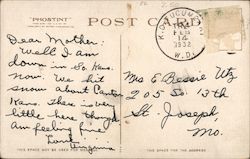 PHOSTINT
POST CARD
Dear Mother:
Well I am
down in So. Kans.
now. We hit
snow about Canton
Kans. There is very
little here though.
am feeling fine.
Love
Virginia
TUCUMCARI
FEB
1932
Mrs Bessie Utz
205 So. 13th
St. Joseph,
Mo.
THIS SPACE FOR THE ADDRESS